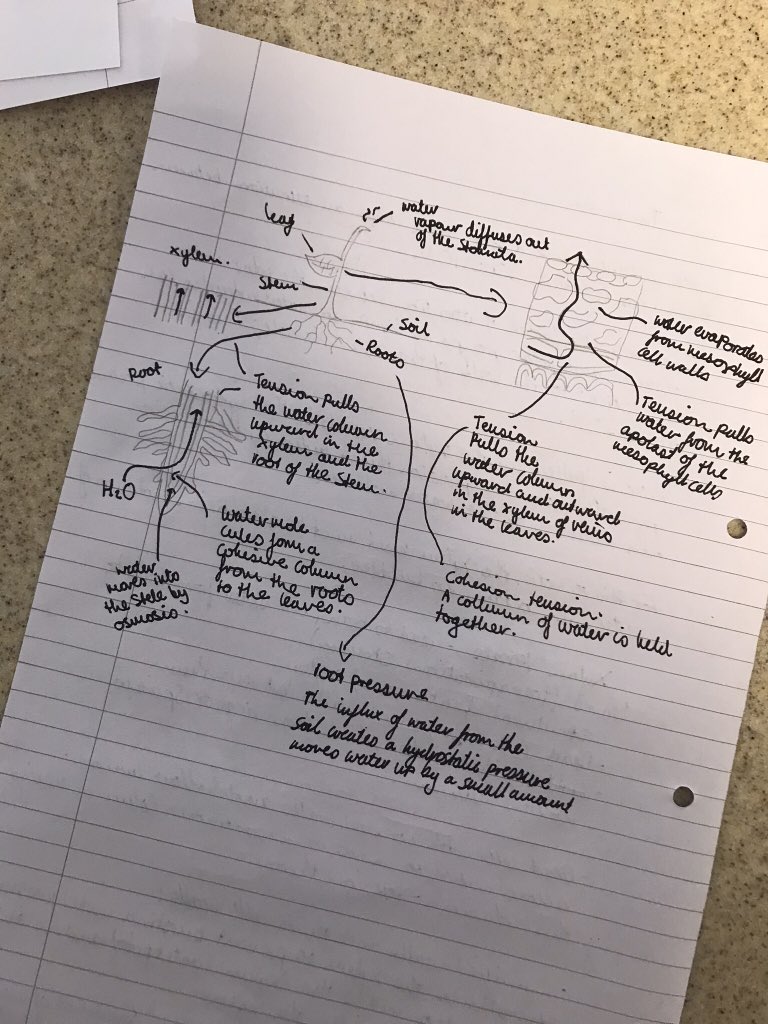 leaf
water
vapour diffuses out
of the stomata.
xylem.
stem
soil
Roots
water evaporates
from mesophyll
cell walls
Root
Tension pulls
the water column
upward in the
xylem and the
root of the stem.
Tension pulls
water from the
apolast of the
mesophyll cells
Tension
pulls the
water column
upward and outward
in the xylem of veins
in the leaves.
H₂O
water mole
cules form a
cohesive column
from the roots
to the leaves.
water
moves into
the stele by
osmosis.
Cohesion tension.
A collumn of water is held
together.
root pressure
The influx of water from the
soil creates a hydrostatic pressure
moves water up by a small amount